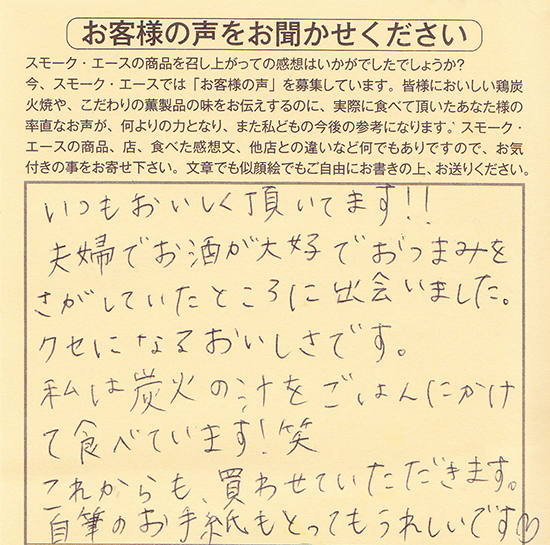 お客様の声をお聞かせください
スモーク・エースの商品を召し上がっての感想はいかがでしたでしょうか?
今、スモーク・エースでは「お客様の声」を募集しています。皆様においしい鶏炭
火焼や、こだわりの薫製品の味をお伝えするのに、実際に食べて頂いたあなた様の
率直なお声が、何よりの力となり、また私どもの今後の参考になります。スモーク・
エースの商品、店、食べた感想文、他店との違いなど何でもありですので、お気
付きの事をお寄せ下さい。文章でも似顔絵でもご自由にお書きの上、お送りください。
いつもおいしく頂いてます!!
夫婦でお酒が大好でおつまみを
さがしていたところに出会いました。
クセになるおいしさです。
私は炭火の汁をごはんにかけ
て食べています!笑
これからも、買わせていただきます。
自筆のお手紙もとってもうれしいです